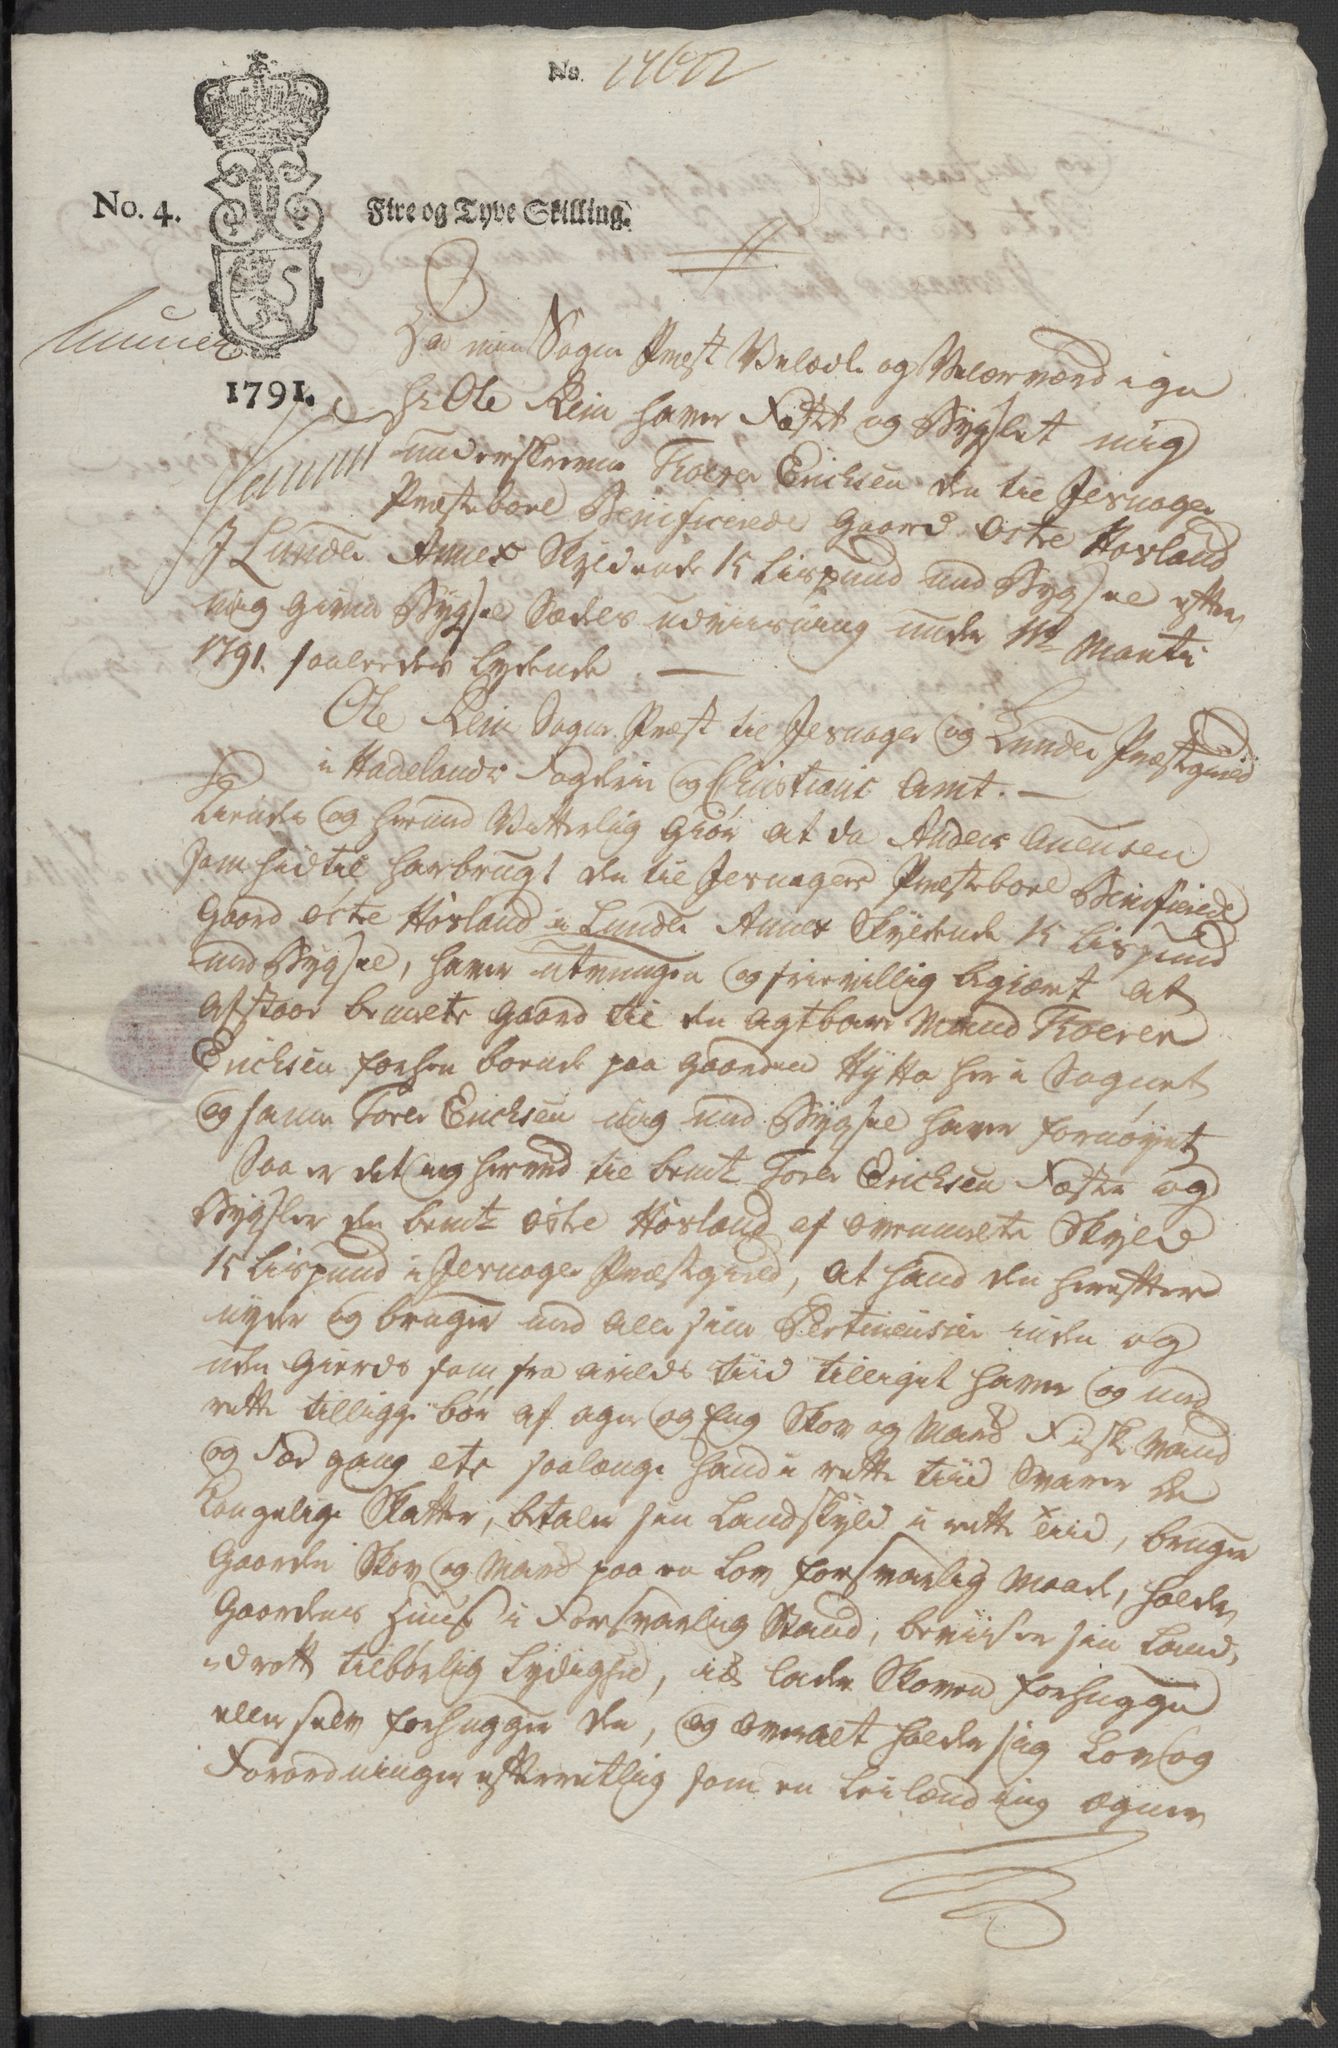 No. 17672
No. 4.
Fire og Tyve Skilling.
1791.
Da min Sogne Præst Velædle og Velærværdige
Hr Ole Rein haver Fæstet og Bygslet mig
underskrevne Thorer Erichsen den til Jevnager
Præstebord Beneficerede Gaard østre Horland
I Lunder Annex Skyldende 1½ Lispund med Bygsel efter
mig given Bygsel Sædels udviisning under 14de Marti
1791. saaledes Lydende —
Ole Rein Sogne Præst til Jevnager og Lunder Præstegield
i Hadelands Fogderie og Christians Amt. —
Kiendes og hermed Vitterlig Giør at da Anders Amensen
som hidtil har brugt den til Jevnagers Præstebord Beneficerede
Gaard østre Horland i Lunder Annex Skyldende 1½ Lispund
med Bygsel, haver utvungen og frievillig begiært at
afstaae bemelte Gaard til den Agtbare Mand Thorer
Erichsen forhen boende paa Gaarden Hytta her i Sognet
og samme Torer Erichsen mig med Bygsel haver fornøyet
Saa er det jeg herved til bemte Torer Erichsen Fæster og
Bygsler den bemte østre Horland af ovenmelte Skyld
1½ Lispund i Jevnager Præstegield, at hand den herefter
nyder og bruger med alle sine Pertinensier inden og
uden Gierds som fra Arilds tiid tilliget haver og med
rette tilligge bør af ager og Eng Skov og Mark Fiske Vand
og Fæd gang etc saalænge hand i rette tiid Svarer de
Kongelige Skatter, betaler sin Landskyld i rette tiid, bruger
Gaardens Skov og Mark paa en Lov forsvarlig Maade, holder
Gaardens Huus i Forsvarlig Stand, beviiser sin Land,
drott tilbørlig Lydighed, ei lader Skoven forhugge
eller selv forhugger den, og overalt holder sig Lov og
Forordninger efterretlig som en Leilænding Egner